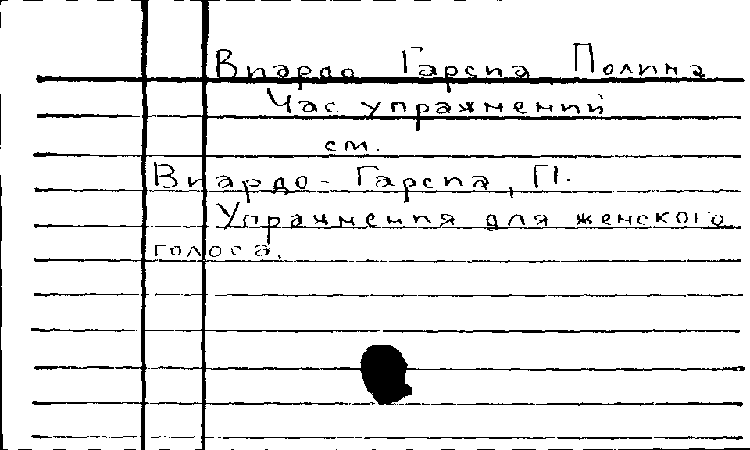 Виардо Гарсиа Полина
Час упражнений
см.
Виардо-Гарсиа, П.
Упражнения для женского
голоса.